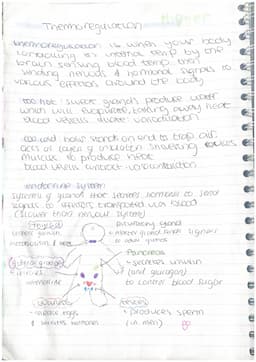 Thermoregulation
thermoregulation is when your body
controlling internal temp by the
brain sensing blood temp then
sending nervous & hormonal signals to
various effectors around the body
too hot: sweat glands produce water
which will evaporate, taking away heat
blood vessels dilate: vasodilation
too cold: hairs stand on end to trap air
acts as layer of insulation shivering causes
muscles to produce heat
blood vessels contract: vasoconstriction
endocrine system
system of glands that secretes hormones to send
signals to effectors transported via blood
(slower than nervous system)
thyroid
pituitary gland
master gland sends signals
to other glands
Pancreas
secretes insulin
(and glucagon)
to control blood sugar
adrenaline
ovaries
release eggs
& secretes hormones
testes
produces sperm
(in men)